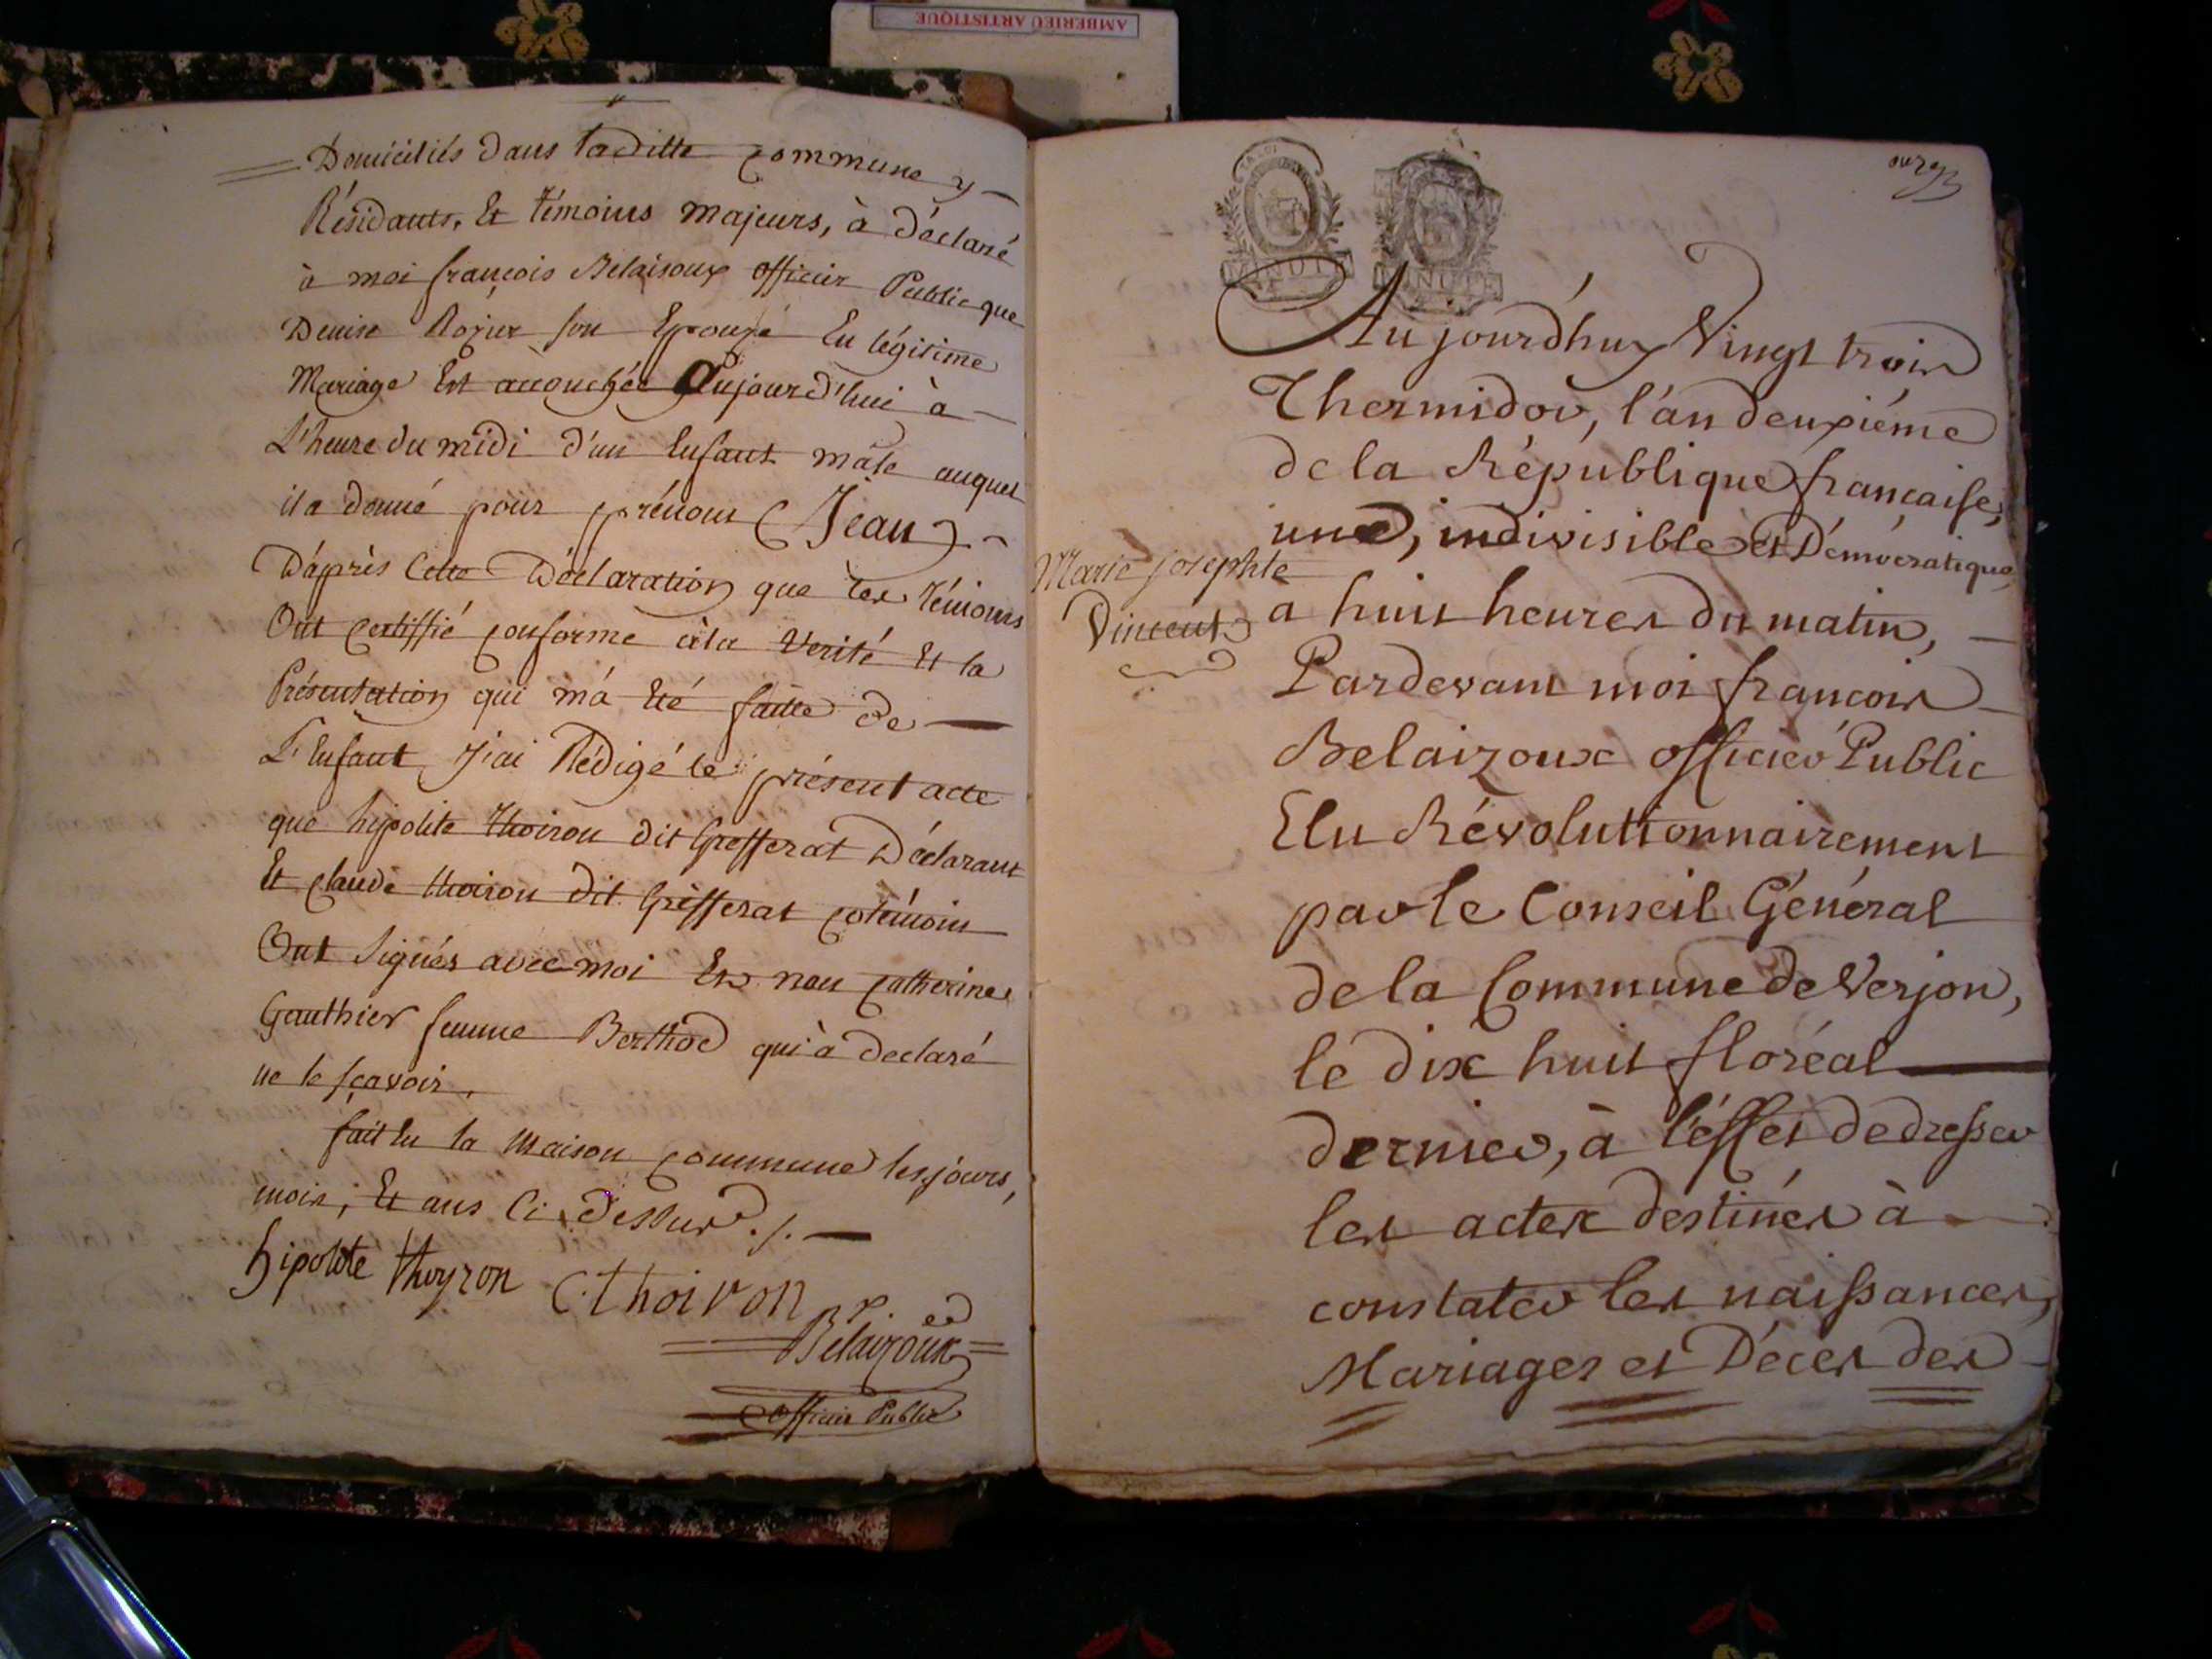 AMBERIEU ARTISTIQUE
Domiciliés dans laditte commune y
Résidants, Et témoins majeurs, à déclaré
à moi françois Belaisoux officier Public que
Denise Rojux son Epouze En légitime
Mariage Est accouchée Aujourd'hui à
L'heure du midi d'un Enfant mâle auquel
il a donné pour prénom (Jean)
D'après Cette Déclaration que les témoins
Ont certiffié conforme à la Verité Et la
Présentation qui m'a été faitte de
L'Enfant J'ai Rédigé le présent acte
que hypolite thoiron dit Grefferat Déclarant
Et claude thoiron dit Grefferat cotémoin
Ont Signés avec moi Et non catherine
Gauthier femme Berthod qui à declaré
ne le sçavoir.
fait En la Maison commune les jours,
mois, Et ans Ci dessus ./.
hipolite thoyron C. thoiron
Belaizoux
officier Public
onze
MINUTE MINUTE
Aujourd'huy Vingt trois
Thermidor, l'an deuxiéme
de la République française,
une, indivisible et Démocratique,
Marie josephte
Vincent
a huit heures du matin,
Pardevant moi francois
Belaizoux officier Public
Elu Révoluttionnairement
par le Conseil Général
de la Commune de Verjon,
le dix huit floréal
dernier, à l'effet de dresser
les actes destinés à
constater les naissances,
Mariages et Décès des